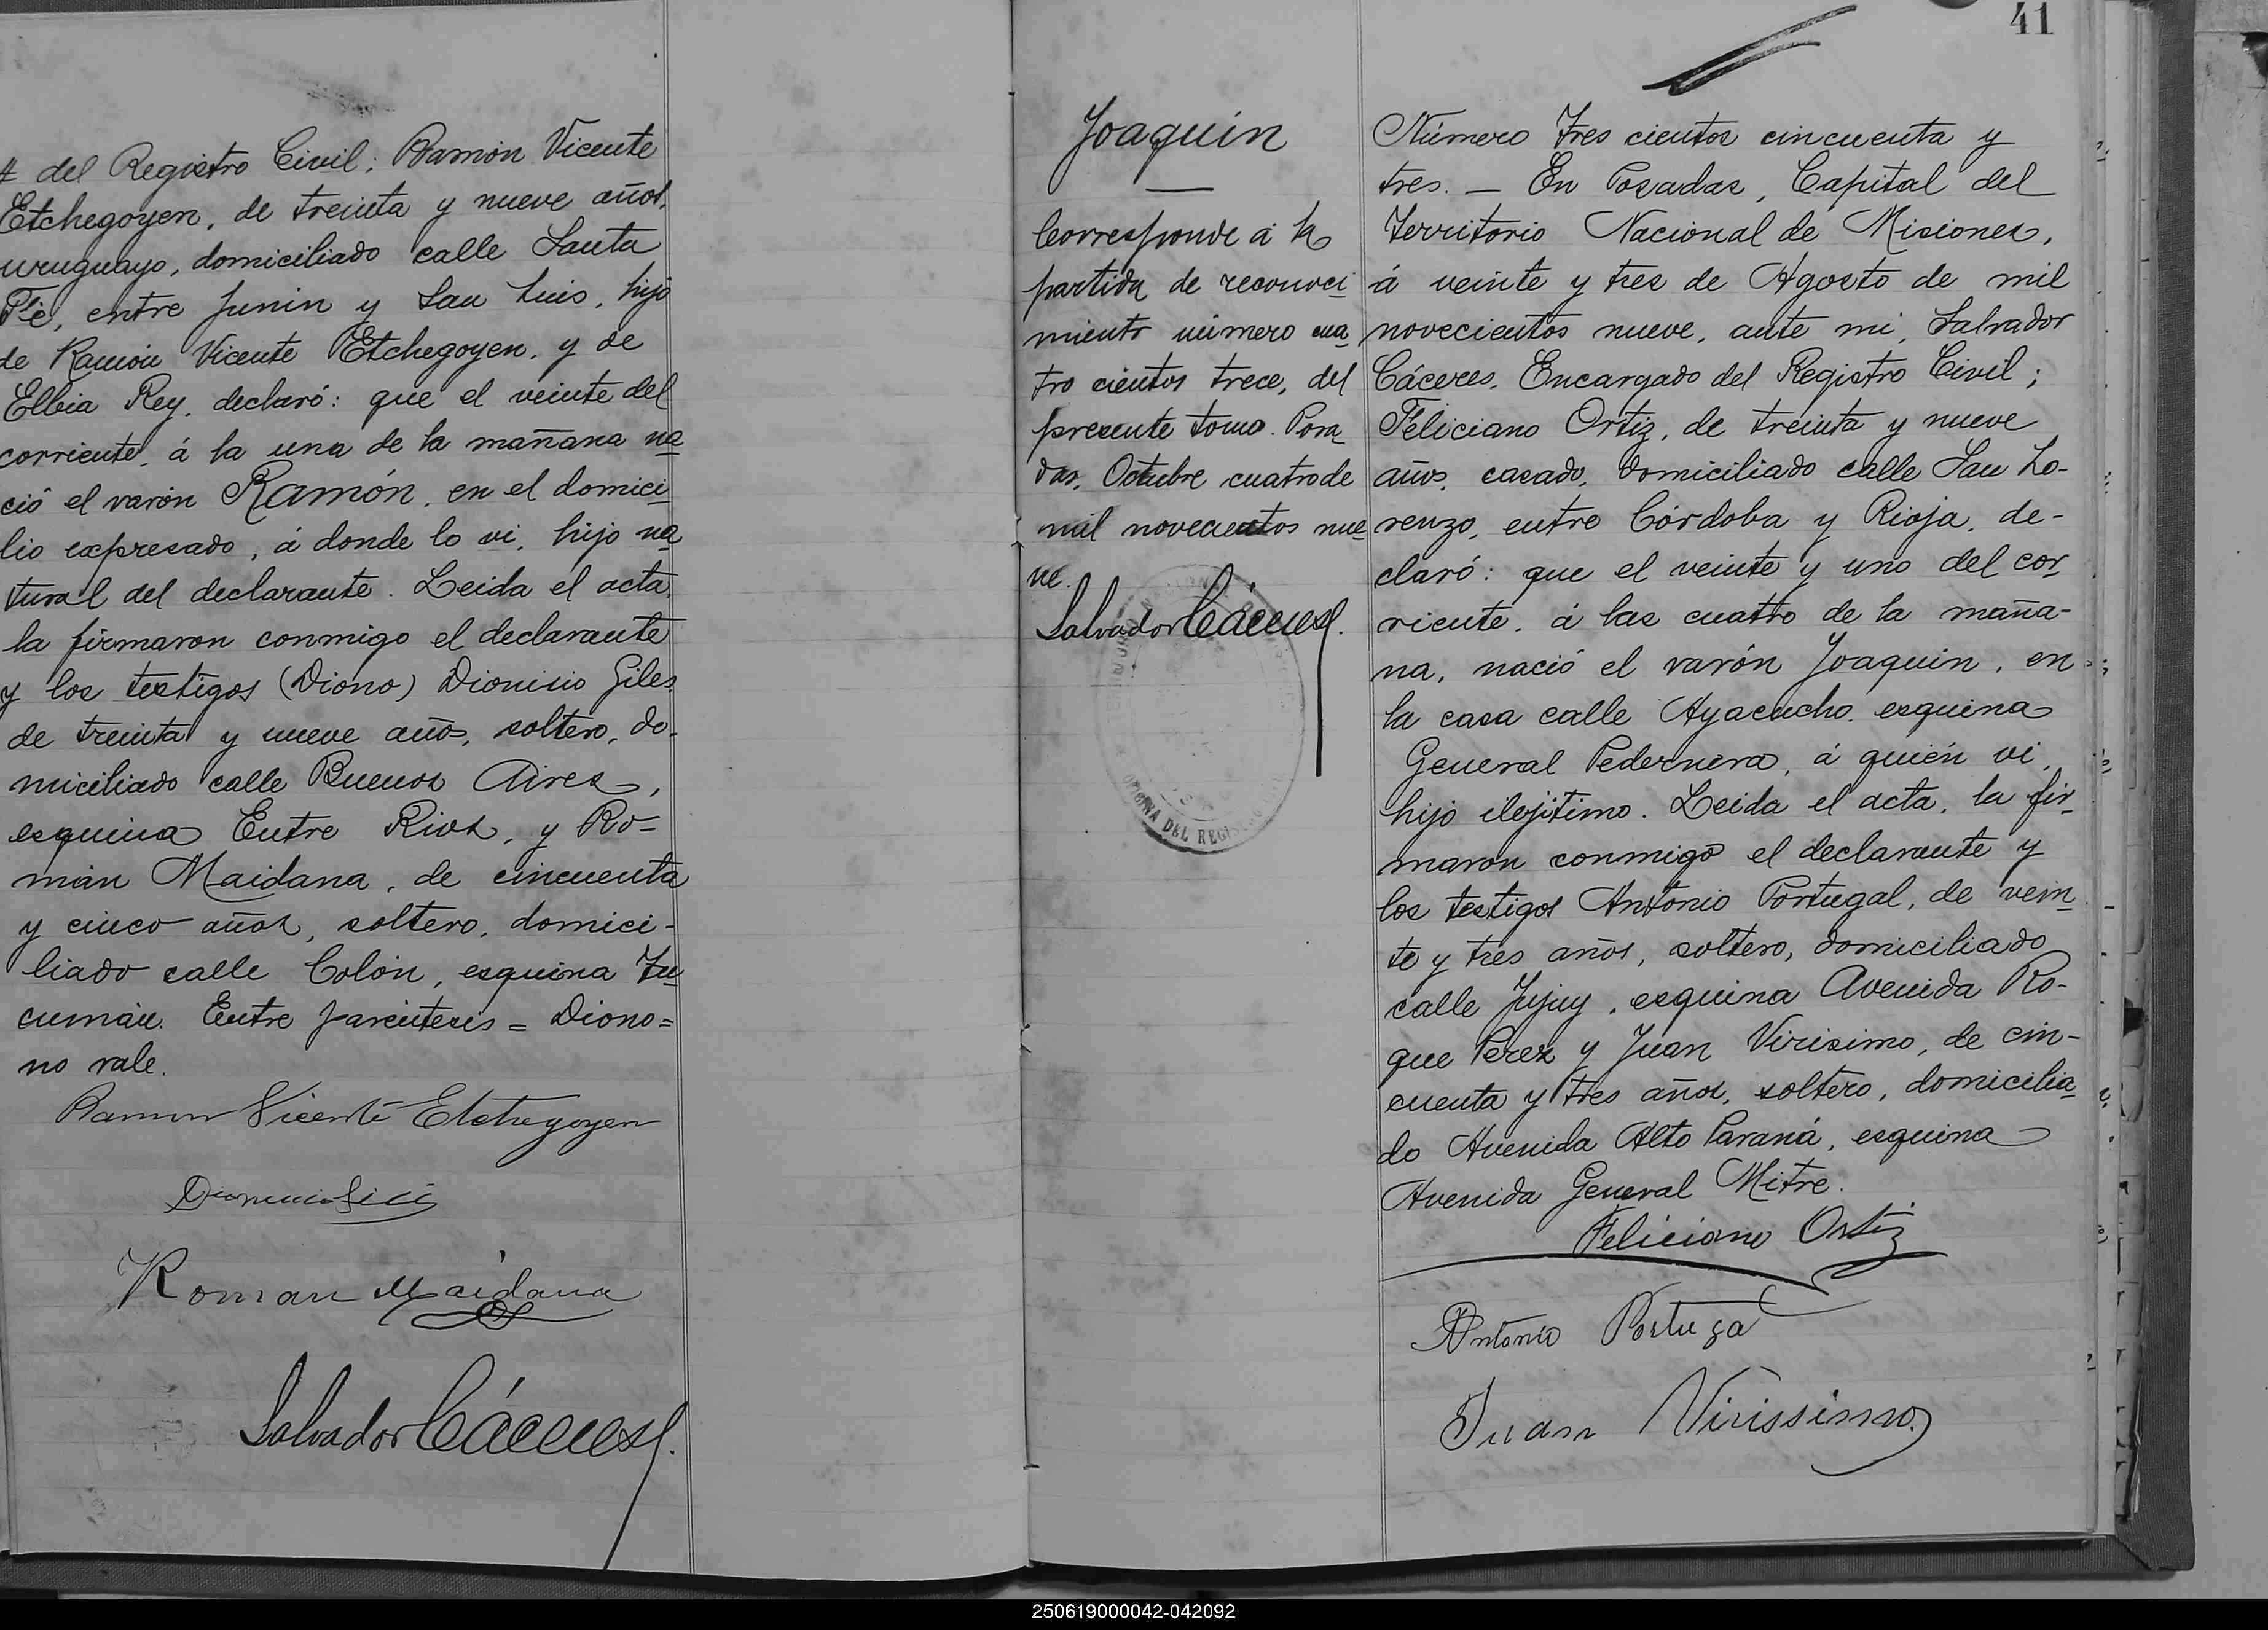 # del Registro Civil; Ramón Vicente
Etchegoyen, de treinta y nueve años,
uruguayo, domiciliado calle Santa
Fé, entre Junin y San Luis, hijo
de Ramón Vicente Etchegoyen, y de
Elbia Rey, declaró: que el veinte del
corriente, á la una de la mañana na
ció el varón Ramón, en el domici
lio expresado, á donde lo vi, hijo na
tural del declarante. Leida el acta,
la firmaron conmigo el declarante
y los testigos (Diono) Dionisio Giles
de treinta y nueve años, soltero, do-
miciliado calle Buenos Aires,
esquina Entre Rios, y Ro-
mán Maidana, de cincuenta
y cinco años, soltero, domici-
liado calle Colón, esquina Tu
cumán. Entre parentesis = Diono =
no vale.
Ramon Vicente Etchegoyen
Roman Maidana
Salvador Cáceres
41
Joaquin
Corresponde á la
partida de reconoci
miento número cua
tro cientos trece, del
presente tomo. Posa
das, Octubre cuatro de
mil novecientos nue
ve.
Salvador Cáceres
OFICINA DEL REGIS
Número Tres cientos cincuenta y
tres. — En Posadas, Capital del
Territorio Nacional de Misiones,
á veinte y tres de Agosto de mil
novecientos nueve, ante mi, Salvador
Cáceres, Encargado del Registro Civil;
Feliciano Ortiz, de treinta y nueve
años, casado, domiciliado calle San Lo-
renzo, entre Córdoba y Rioja, de-
claró: que el veinte y uno del cor
riente, á las cuatro de la maña-
na, nació el varón Joaquin, en
la casa calle Ayacucho, esquina
General Pedernera, á quién vi,
hijo ilejitimo. Leida el acta, la fir
maron conmigo el declarante y
los testigos Antonio Portugal, de vein
te y tres años, soltero, domiciliado
calle Jujuy, esquina Avenida Ro-
que Perez y Juan Virisimo, de cin-
cuenta y tres años, soltero, domicilia
do Avenida Alto Paraná, esquina
Avenida General Mitre.
Feliciano Ortiz
Antonio Portuga
Juan Virissimo
250619000042-042092